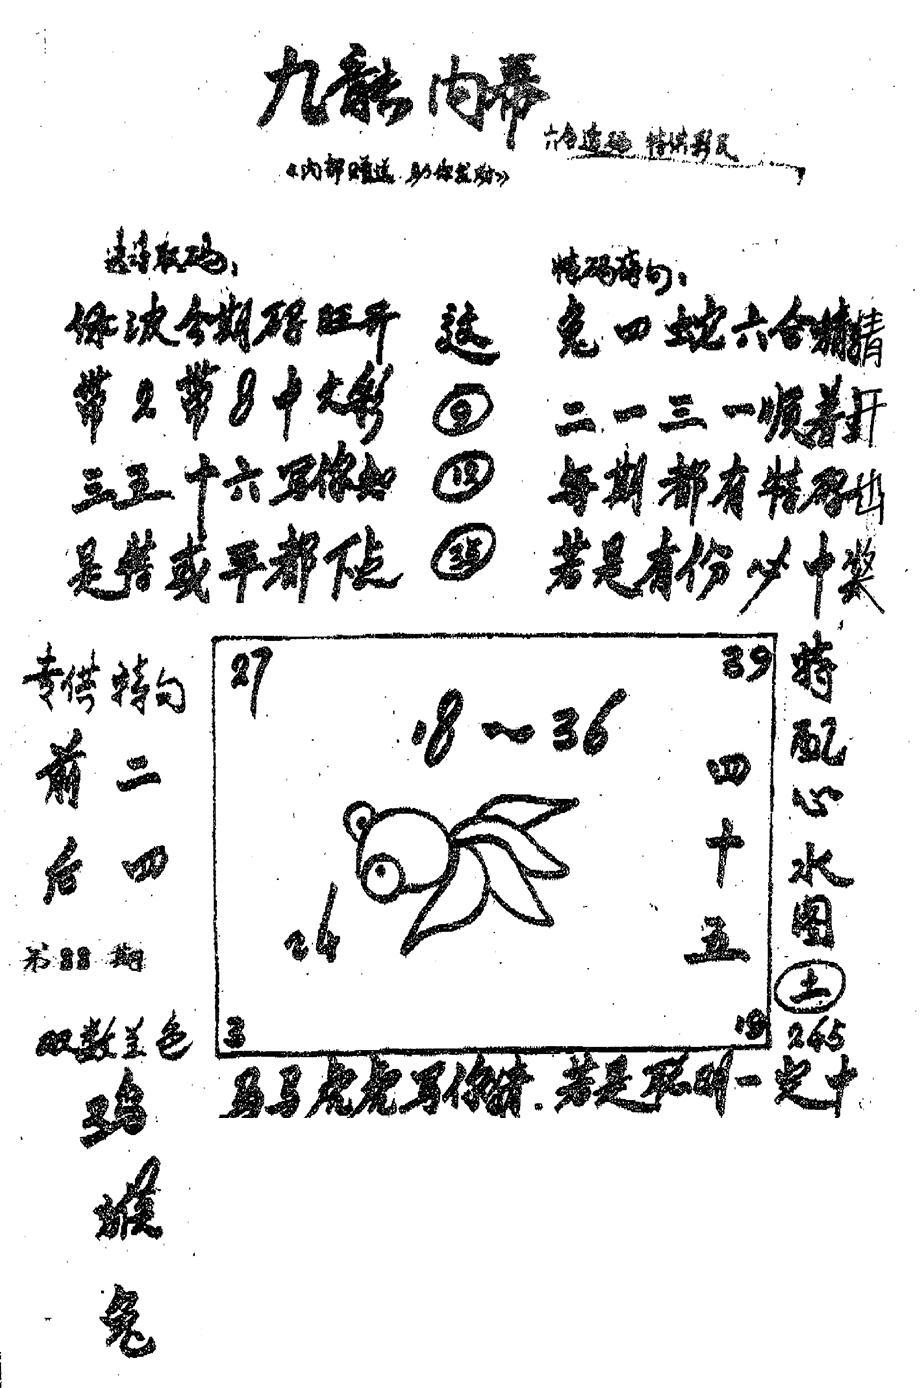 九龍内幕
《内部赠送 助你发财》
绿波今期码旺开 这
带2带8中大彩 9
三五十六写你知 12
是特或平都下点
特码诗句:
兔四蛇六合特猜
二一三一顺着开
每期都有特码出
若是有份必中奖
专供特句
前二
后四
第88期
双数差色
鸡
猴
兔
27
39
18~36
四十五
24
3
19
特配心水图
土
245
马马虎虎写你猜.若是聪明一定中